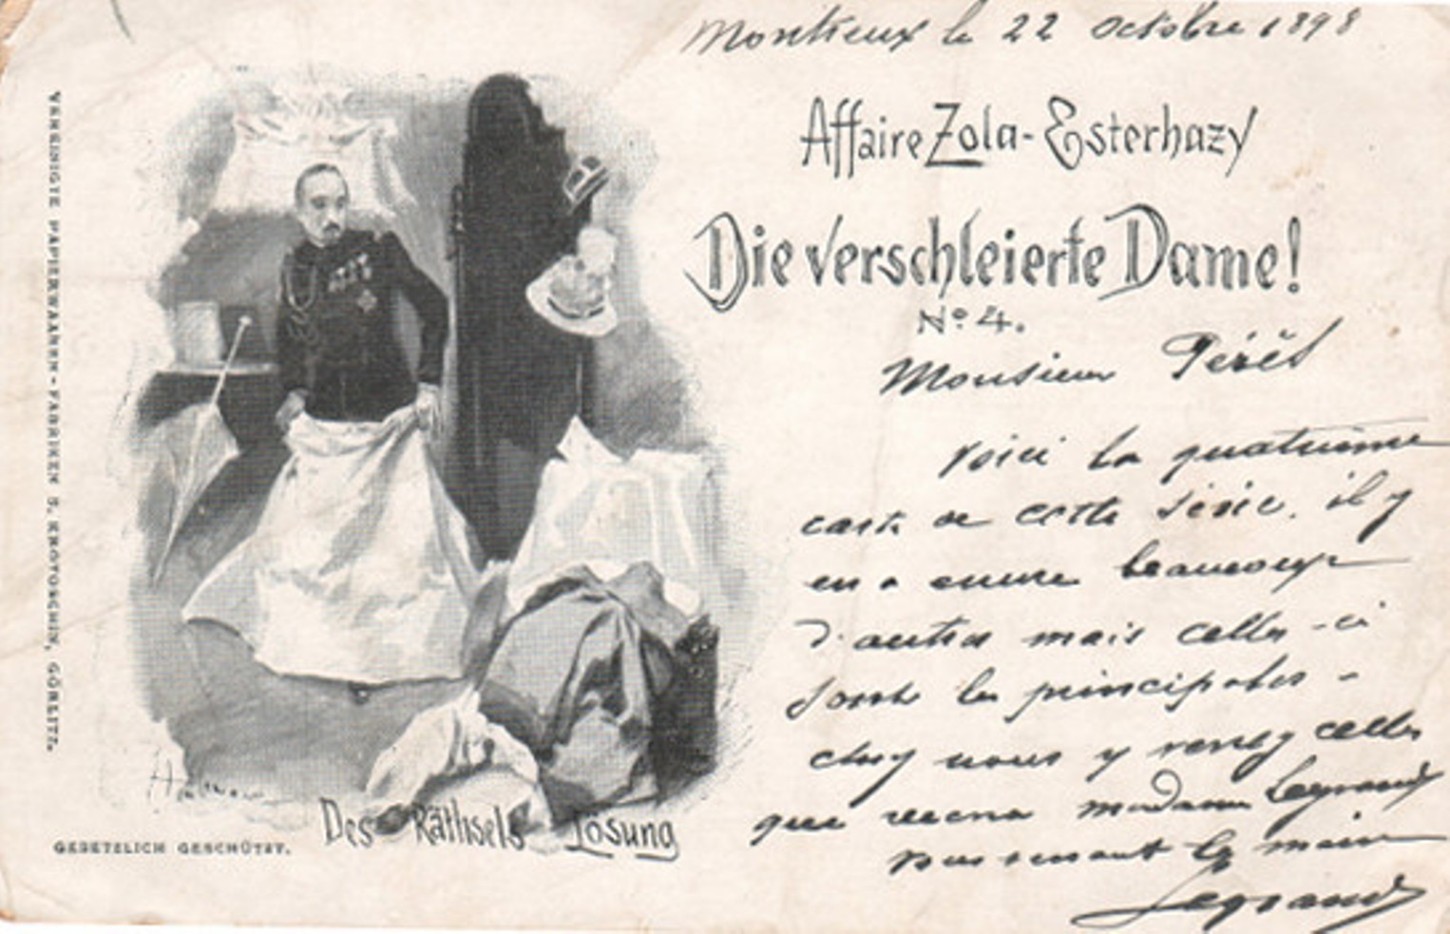 Montreux le 22 Octobre 1898
Affaire Zola-Esterhazy
Die verschleierte Dame!
No. 4.
Monsieur
voici la quatrième
carte de cette série. il y
en a encore beaucoup
d'autres mais celles-ci
sont les principales -
chez nous y verrez celles
que madame Legrand
la main
Legrand
Des Räthsels Lösung
GESETZLICH GESCHÜTZT.
VEREINIGTE PAPIERWAREN-FABRIKEN S. KROTOSCHIN, GÖRLITZ.